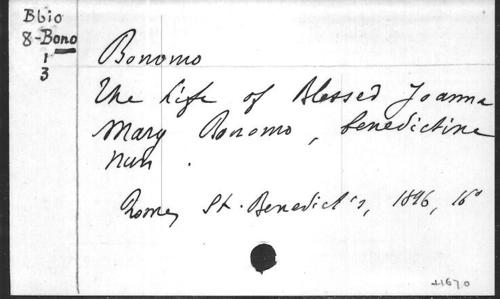 Bbio
8-Bono
1
3
Bonomo
The Life of Blessed Joanna
Mary Bonomo, benedictine
nun.
Rome, St. Benedict's, 1896, 16°